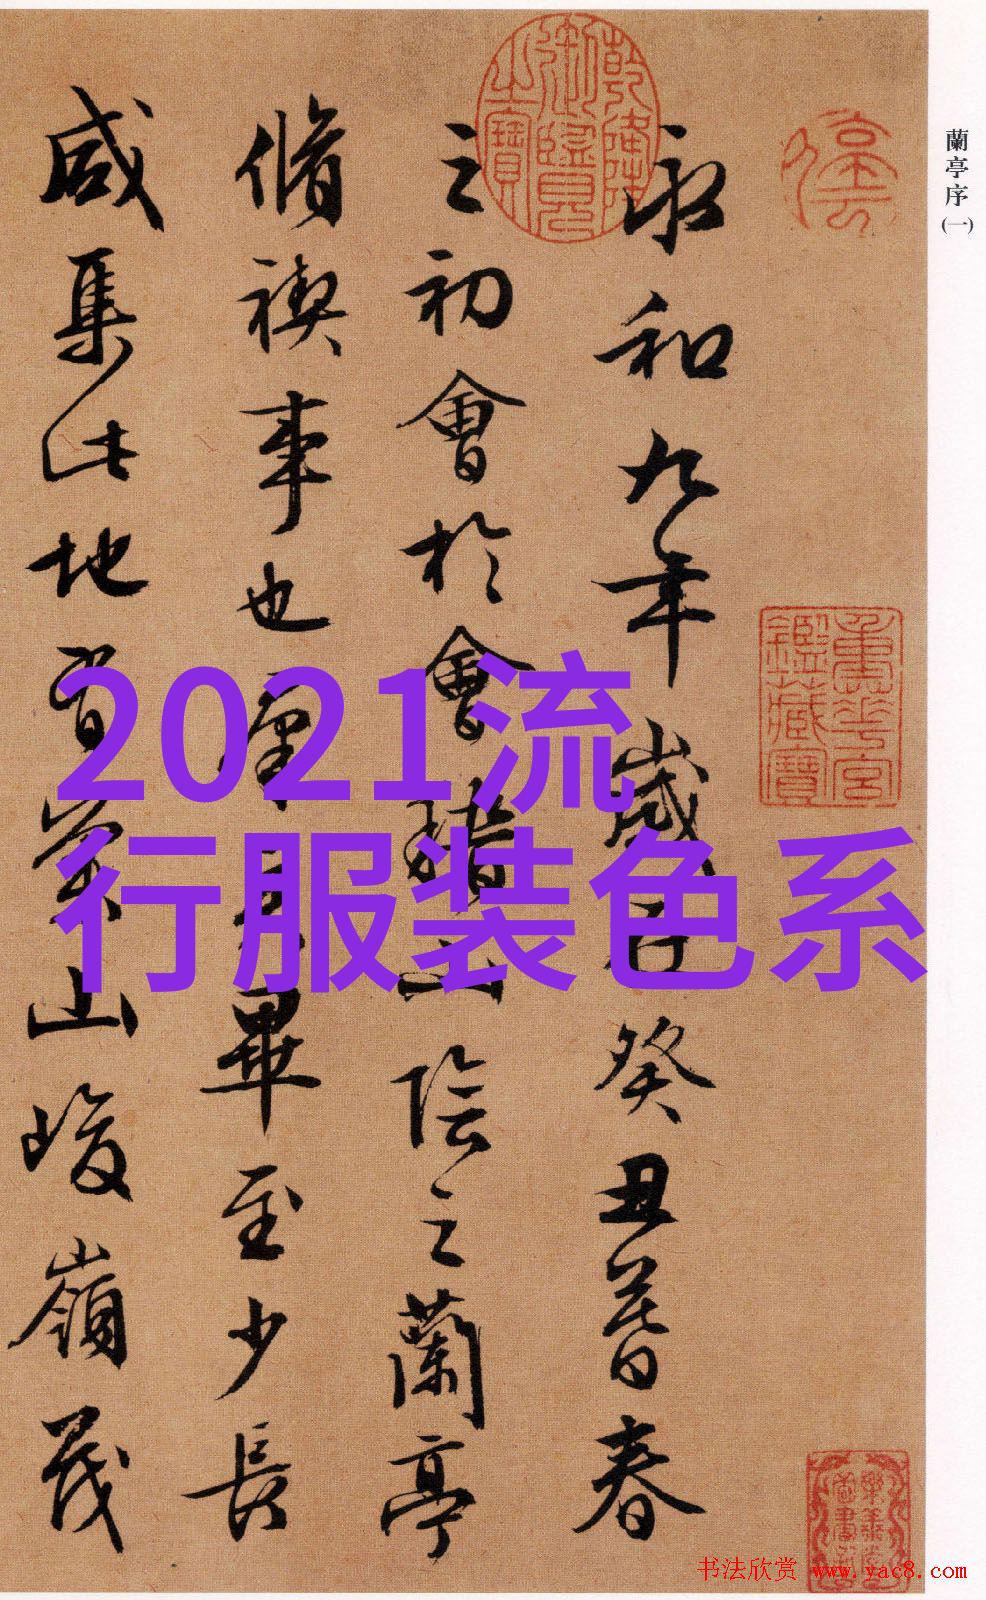 蘭亭序(一)
永和九年歲在癸丑暮春
之初會於會稽山陰之蘭亭
脩禊事也羣賢畢至少長
咸集此地有崇山峻嶺茂
乾隆御覽之寶
重華宮鑑藏寶
2021流
行服装色系
书法欣赏 www.yac8.com